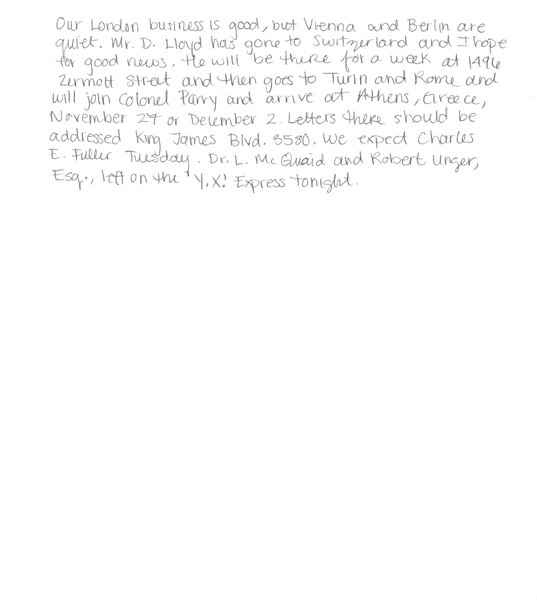 Our London business is good, but Vienna and Berlin are
quiet. Mr. D. Lloyd has gone to Switzerland and I hope
for good news. He will be there for a week at 1496
Zermott Street and then goes to Turin and Rome and
will join Colonel Parry and arrive at Athens, Greece,
November 27 or December 2. Letters there should be
addressed King James Blvd. 3580. We expect Charles
E. Fuller Tuesday. Dr. L. McQuaid and Robert Unger,
Esq., left on the 'Y.X! Express tonight.